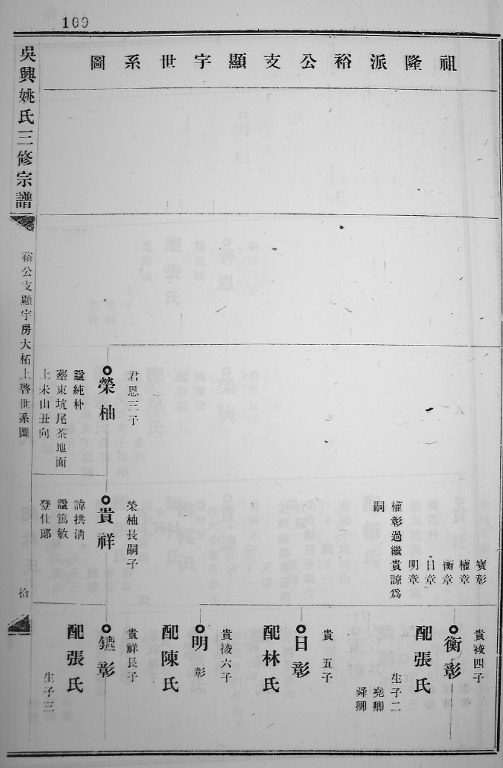 100
祖隆派裕公支顯宇世系圖
寳彰
權章
衡章
日章
明章
權彰過繼貴諒爲
嗣
貴祾四子
衡彰
配張氏
生子二
堯卿
舜卿
貴 五子
日彰
配林氏
貴祾六子
明彰
配陳氏
君恩三子
榮柚
諡純朴
塟東坑尾茶地面
上未山丑向
榮柚長嗣子
貴祥
諱拱清
諡篤敏
登仕郎
貴祥長子
彰
配張氏
生子三
吳興姚氏三修宗譜
裕公支顯宇房大柘上啓世系圖
拾